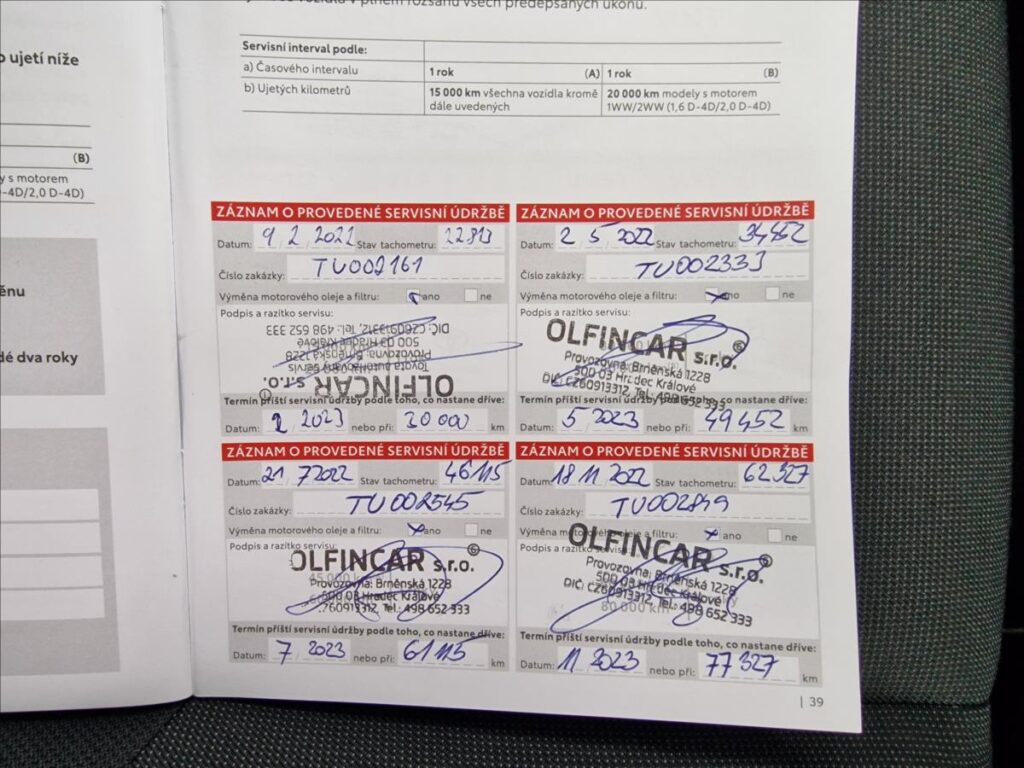 o ujetí níže
(B)
y s motorem
-4D/2,0 D-4D)
ěnu
dé dva roky
vozidla v plném rozsahu všech předepsaných úkonů.
Servisní interval podle:
a) Časového intervalu 1 rok (A) 1 rok (B)
b) Ujetých kilometrů 15 000 km všechna vozidla kromě 20 000 km modely s motorem
dále uvedených 1WW/2WW (1,6 D-4D/2,0 D-4D)
ZÁZNAM O PROVEDENÉ SERVISNÍ ÚDRŽBĚ
Datum: 9 2 2022 Stav tachometru: 22813
Číslo zakázky: TU002161
Výměna motorového oleje a filtru: ano ne
Podpis a razítko servisu:
OLFINCAR s.r.o.
Toyota autorizovaný servis
Provozovna: Brněnská 1228
500 03 Hradec Králové
DIČ: CZ60913312, Tel.: 498 652 333
Termín příští servisní údržby podle toho, co nastane dříve:
Datum: 2 2023 nebo při: 30 000 km
ZÁZNAM O PROVEDENÉ SERVISNÍ ÚDRŽBĚ
Datum: 2 5 2022 Stav tachometru: 34452
Číslo zakázky: TU002333
Výměna motorového oleje a filtru: ano ne
Podpis a razítko servisu:
OLFINCAR s.r.o.
Provozovna: Brněnská 1228
500 03 Hradec Králové
DIČ: CZ60913312, Tel.: 498 652 333
Termín příští servisní údržby podle toho, co nastane dříve:
Datum: 5 2023 nebo při: 49452 km
ZÁZNAM O PROVEDENÉ SERVISNÍ ÚDRŽBĚ
Datum: 21 7 2022 Stav tachometru: 46115
Číslo zakázky: TU002545
Výměna motorového oleje a filtru: ano ne
Podpis a razítko servisu:
OLFINCAR s.r.o.
Provozovna: Brněnská 1228
500 03 Hradec Králové
Z60913312, Tel.: 498 652 333
Termín příští servisní údržby podle toho, co nastane dříve:
Datum: 7 2023 nebo při: 61115 km
ZÁZNAM O PROVEDENÉ SERVISNÍ ÚDRŽBĚ
Datum: 18 11 2022 Stav tachometru: 62327
Číslo zakázky: TU002849
Výměna motorového oleje a filtru: ano ne
Podpis a razítko servisu:
OLFINCAR s.r.o.
Provozovna: Brněnská 1228
500 03 Hradec Králové
DIČ: CZ60913312, Tel.: 498 652 333
80 000 km
Termín příští servisní údržby podle toho, co nastane dříve:
Datum: 11 2023 nebo při: 77327 km
| 39